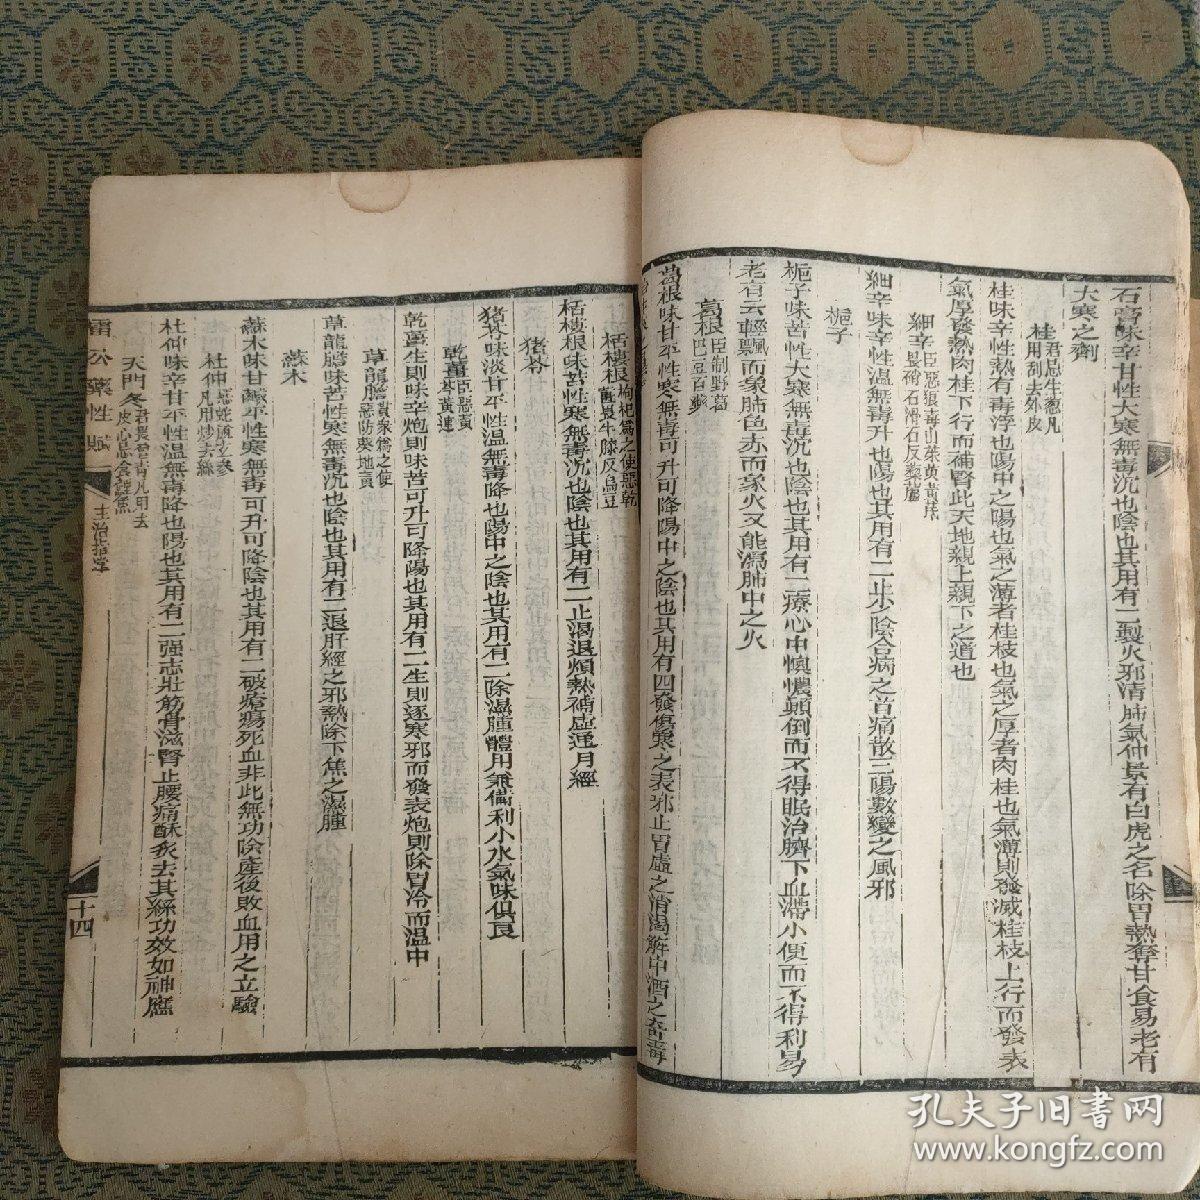 石膏味辛甘性大寒無毒沉也陰也其用有二製火邪清肺氣仲景有白虎之名除胃熱奪甘食易老有
大寒之劑
桂君忌生葱凡用刮去外皮
桂味辛性熱有毒浮也陽中之陽也氣之薄者桂枝也氣之厚者肉桂也氣薄則發泄桂枝上行而發表
氣厚發熱肉桂下行而補腎此天地親上親下之道也
細辛臣惡狼毒山茱黃黃芪畏硝石滑石反藜蘆
細辛味辛性溫無毒升也陽也其用有二止少陰合病之首痛散三陽數變之風邪
梔子
梔子味苦性大寒無毒沉也陰也其用有二療心中懊憹顛倒而不得眠治臍下血滯小便而不得利易
老有云輕飄而象肺色赤而象火又能瀉肺中之火
葛根臣制野葛巴豆百藥
葛根味甘平性寒無毒可升可降陽中之陰也其用有四發傷寒之表邪止胃虛之消渴解中酒之奇毒
栝樓根枸杞為之使惡乾薑畏牛膝反烏豆
栝樓根味苦性寒無毒沉也陰也其用有二止渴退煩熱補虛通月經
猪苓
猪苓味淡甘平性溫無毒降也陽中之陰也其用有二除濕腫體用兼備利小水氣味俱良
乾薑臣惡黃芩黃連
乾薑生則味辛炮則味苦可升可降陽也其用有二生則逐寒邪而發表炮則除胃冷而溫中
草龍膽貫衆為之使惡防葵地黃
草龍膽味苦性寒無毒沉也陰也其用有二退肝經之邪熱除下焦之濕腫
蘇木
蘇木味甘鹹平性寒無毒可升可降陰也其用有二破瘡瘍死血非此無功除產後敗血用之立驗
杜仲惡蛇蛻玄參凡用炒去絲
杜仲味辛甘平性溫無毒降也陽也其用有二強志壯筋骨滋腎止腰痛酥炙去其絲功效如神應
天門冬君畏曾青凡用去皮心忌食鯉魚
雷公藥性賦 主治指掌 十四
孔夫子旧書网
www.kongfz.com